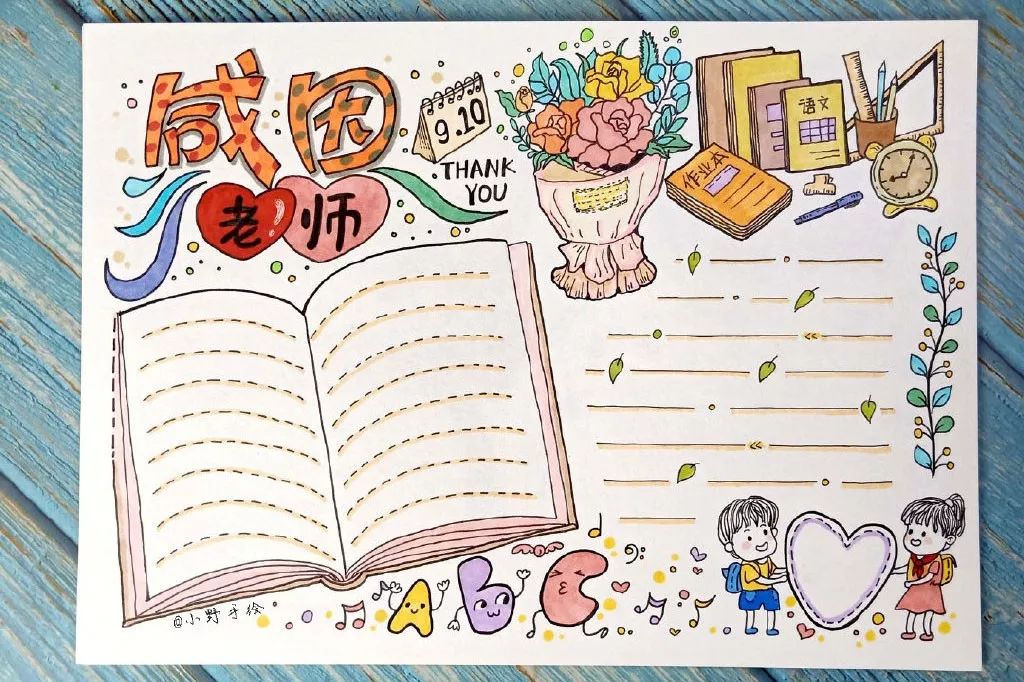 感恩
老师
9.10
THANK
YOU
语文
作业本
ABC
@小野手绘